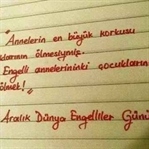 "Annelerin en büyük korkusu
klarının ölmesiymiş.
Engelli annelerininki çocukların
ölmek!"
Aralık Dünya Engelliler Günü